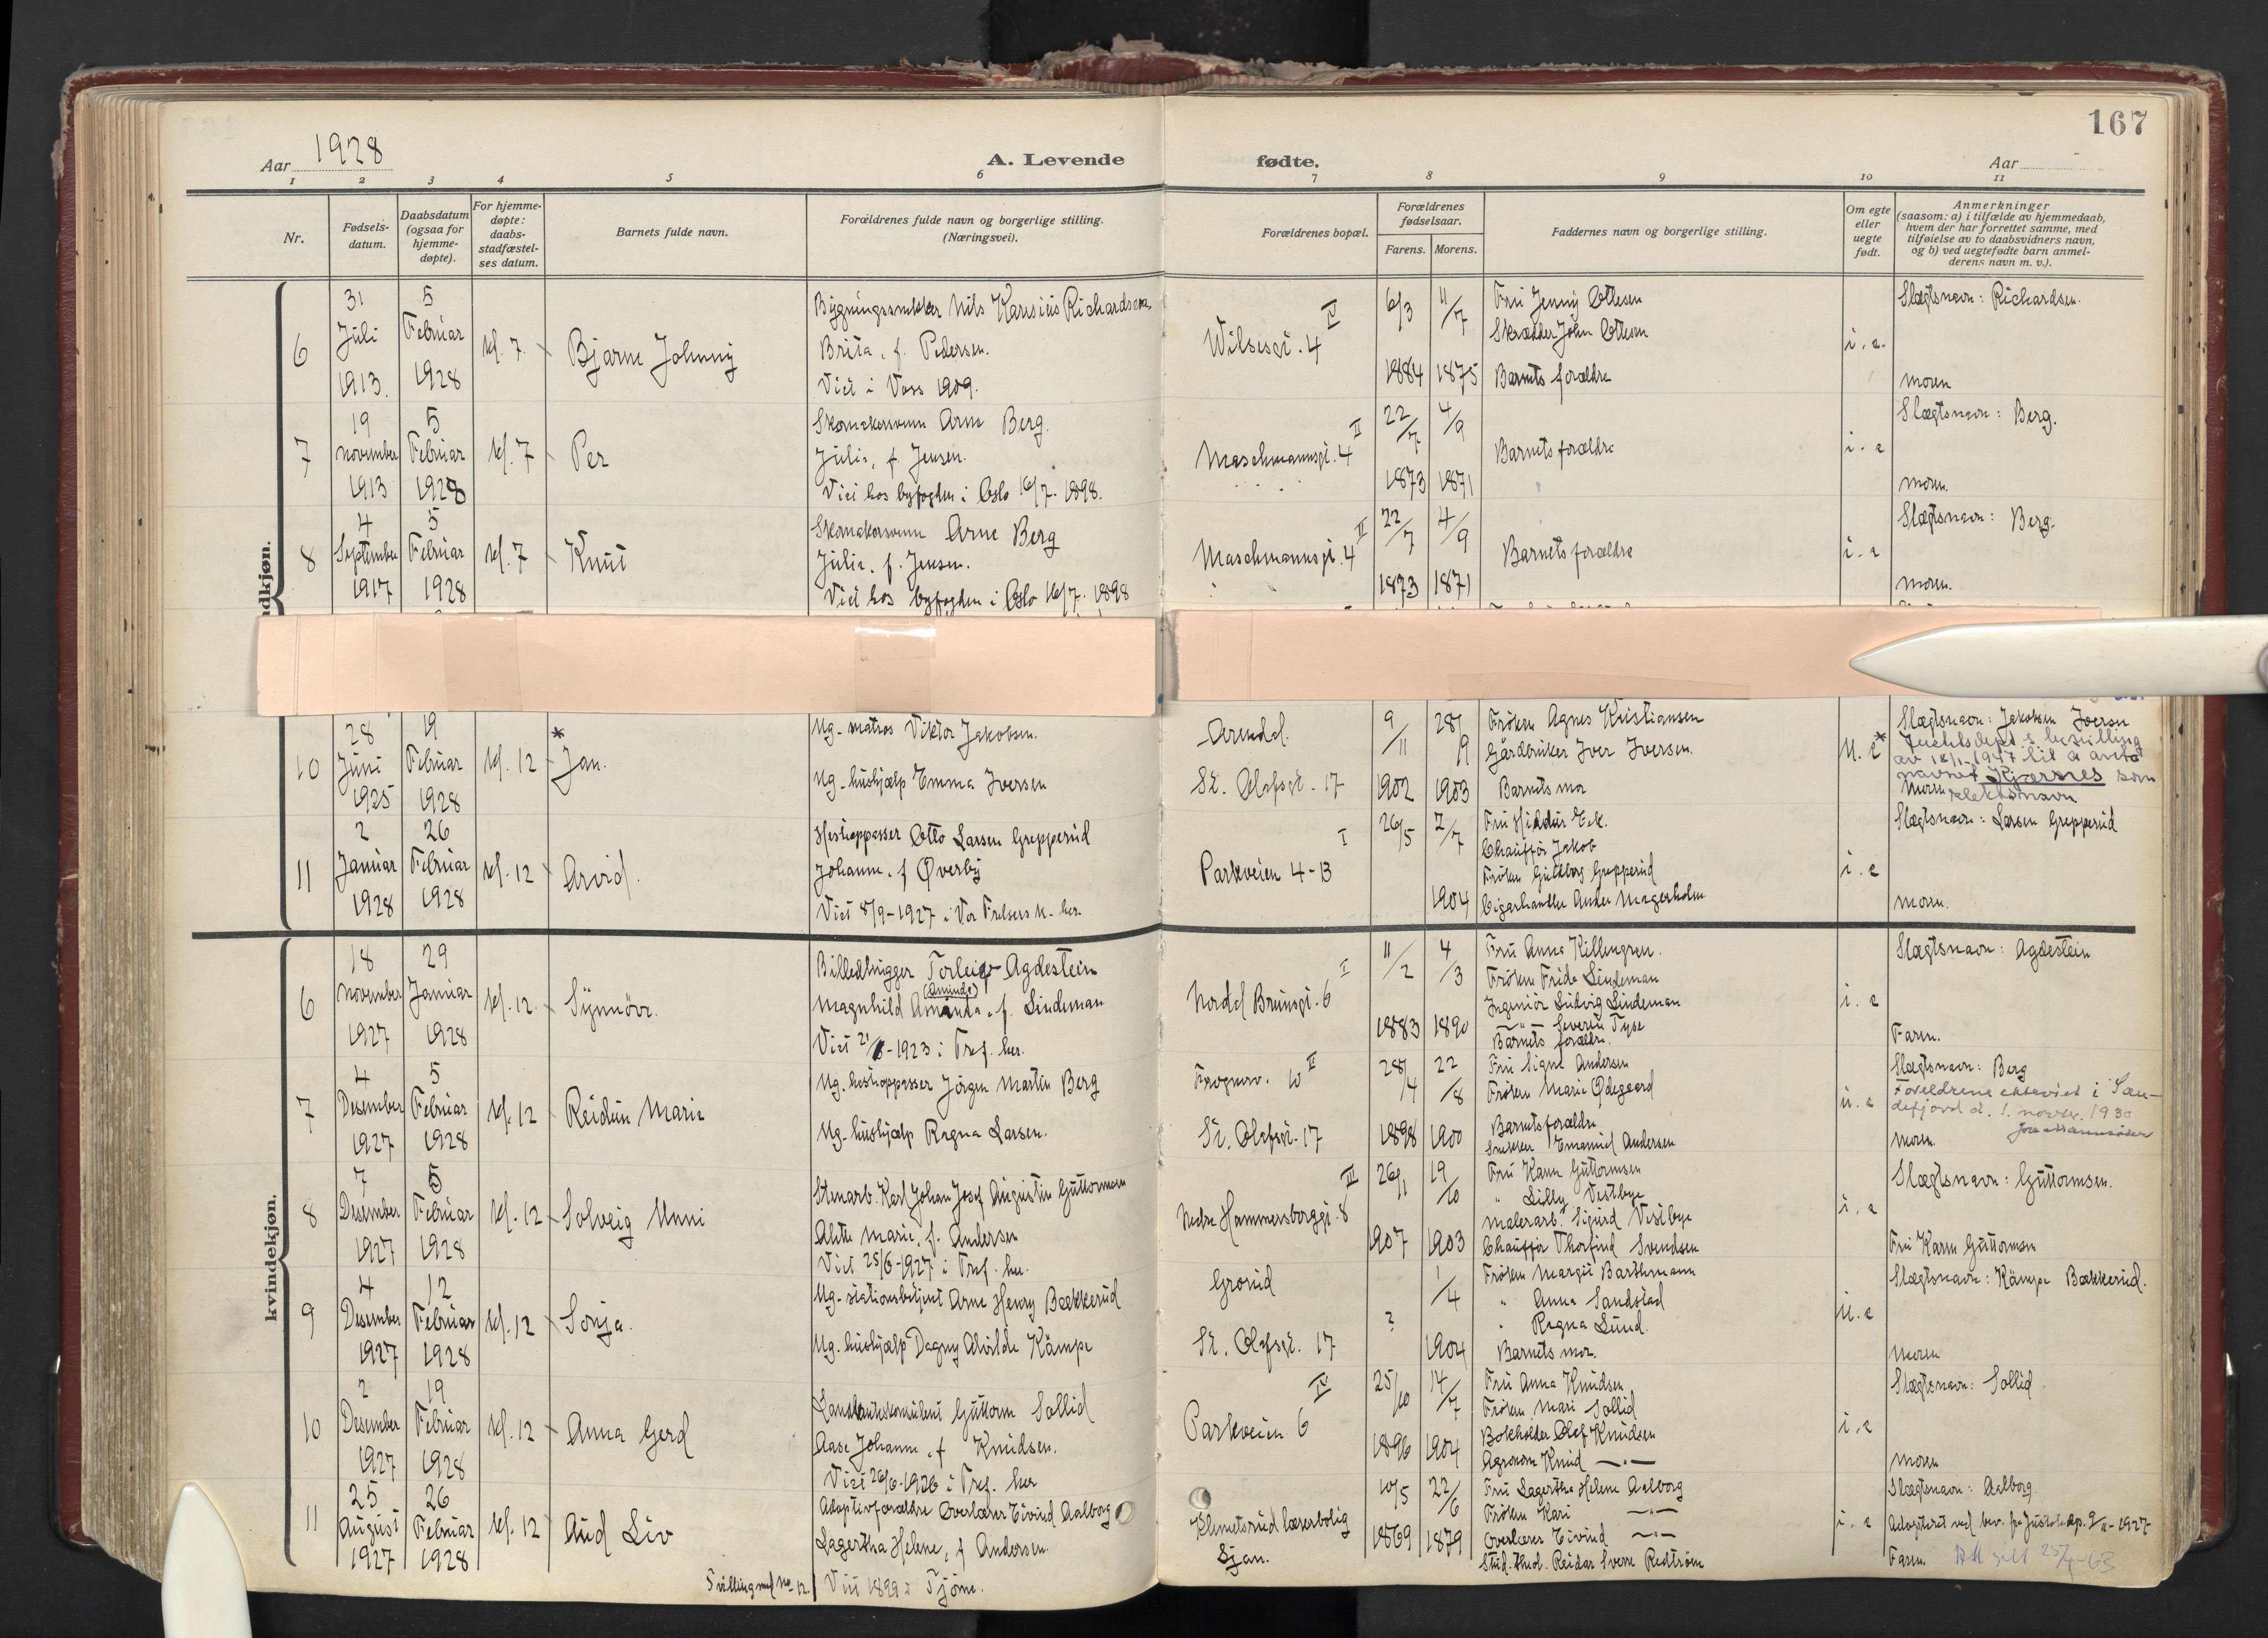 167
Aar 1928
A. Levende fødte.
Aar
1 2 3 4 5 6 7 8 9 10 11
Nr.
Fødsels-
datum.
Daabsdatum
(ogsaa for
hjemme-
døpte).
For hjemme-
døpte:
daabs-
stadfæstel-
ses datum.
Barnets fulde navn.
Forældrenes fulde navn og borgerlige stilling.
(Næringsvei).
Forældrenes bopæl.
Forældrenes
fødselsaar.
Farens. Morens.
Faddernes navn og borgerlige stilling.
Om egte
eller
uegte
født.
Anmerkninger
(saasom: a) i tilfælde av hjemmedaab,
hvem der har forrettet samme, med
tilføielse av to daabsvidners navn,
og b) ved uegtefødte barn anmel-
derens navn m. v.).
6
31
Juli
1913.
5
Februar
1928
kl. 7
Bjarne Johnny
Bygningssnekker Nils Richardsen
Brita, f. Pedersen.
Viet i Voss 1909.
Wilsesgt. 4 IV
6/3 1884
11/7 1875
Fru Jenny Ottesen
Skrædder John Ottesen
Barnets forældre
i. e.
Slægtsnavn: Richardsen.
moren
7
19
november
1913
5
Februar
1928
kl. 7
Per
Skomakersvenn Arne Berg.
Julie, f. Jensen.
Viet hos byfogden i Oslo 16/7. 1898.
Maschmannsgt. 4 II
22/7 1873
4/9 1871
Barnets forældre
i. e
Slægtsnavn: Berg.
moren.
8
4
September
1917
5
Februar
1928
kl. 7
Knut
Skomakersvenn Arne Berg
Julie, f. Jensen.
Viet hos byfogden i Oslo 16/7. 1898
Maschmannsgt. 4 II
22/7 1873
4/9 1871
Barnets forældre
i. e
Slægtsnavn: Berg.
moren.
dkjøn.
10
28
Juni
1925
19
Februar
1928
kl. 12
* Jan.
Ug. matros Viktor Jakobsen.
Ug. hushjælp Emma Iversen
Arendal.
St. Olafsgt. 17
9/11 1902
28/9 1903
Frøken Agnes Kristiansen
Gårdbruker Iver Iversen.
Barnets mor
u. e
Slægtsnavn: Jakobsen Iversen
* Justisdept.s bevilling
av 18/11-1947 til å anta
navnet Kjærnes som
slektsnavn
Moren
11
2
Januar
1928
26
Februar
1928
kl. 12
Arvid.
Hestepasser Otto Larsen Grepperud
Johanne, f Øverby
Viet 8/9-1927 i Vor Frelsers k. her.
Parkveien 4-B I
26/5
2/7 1904
Fru Eek.
Chauffør Jakob
Frøken Gudborg Grepperud
Cigarhandler Ander Magerholm
i. e
Slægtsnavn: Larsen Grepperud
moren.
kvindekjøn.
6
18
november
1927
29
Januar
1928
kl. 12
Synnöve.
Billedhugger Torleif Agdestein
(Aminda)
Magnhild Amanda, f. Lindeman
Viet 21/8-1923 i Tref. her.
Nordal Brunsgt. 6 I
11/2 1883
4/3 1890
Fru Anna Killengren.
Frøken Frida Lindeman
Ingeniør Ludvig Lindeman
—"— Severin Tyse
Barnets forældre.
i. e
Slægtsnavn: Agdestein
Faren.
7
4
Desember
1927
5
Februar
1928
kl. 12
Reidun Marie
Ug. hestepasser Jörgen Martin Berg
Ug. hushjælp Ragna Larsen.
Frognerv. 10 II
St. Olafsgt. 17
28/4 1898
22/8 1900
Fru Signe Andersen
Frøken Marie Ødegaard
Barnets forældre
Snekker Emanuel Andersen
u. e
Slægtsnavn: Berg
Foreldrene ekteviet i San-
defjord d. 1. novbr. 1930
moren.
8
7
Desember
1927
5
Februar
1928
kl. 12
Solveig Unni
Stenarb. Karl Johan Josef Augustin Guttormsen
Alette Marie, f. Andersen
Viet 25/6-1927 i Tref. her.
Nedre Hammersborggt. 8 III
26/1 1907
19/10 1903
Fru Karen Guttormsen
" Lilly Vestbye
Malerarb. Sigurd Vestbye
Chauffør Thorfind Svendsen
i. e
Slægtsnavn: Guttormsen.
Fru Karen Guttormsen
9
4
Desember
1927
12
Februar
1928
kl. 12
Sonja.
Ug. stationsbetjent Arne Henry Bækkerud
Ug. hushjælp Dagny Alvilde Kämpe
Grorud
St. Olafsgt. 17
?
1/4 1904
Frøken Margit Barthmann
" Anna Sandstad
" Ragna Lund.
Barnets mor.
u. e
Slægtsnavn: Kämpe Bækkerud.
moren
10
2
Desember
1927
19
Februar
1928
kl. 12
Anna Gerd
Landbrukskonsulent Guttorm Sollid
Aase Johanne, f Knudsen.
Viet 26/6-1926 i Tref. her
Parkveien 6 IV
25/10 1896
14/7 1904
Fru Anna Knudsen
Frøken Mari Sollid
Bokholder Olaf Knudsen
Agronom Knud —"—
i. e
Slægtsnavn: Sollid
moren
11
25
August
1927
26
Februar
1928
kl. 12
Aud Liv
Adoptivforældre Overlærer Eivind Aalborg
Lagertha Helene, f Andersen.
Viet 1899 i Tjöme.
Tvilling med No 12.
Klemetsrud lærerbolig
Ljan.
10/5 1869
22/6 1879
Fru Lagertha Helene Aalborg
Frøken Kari —"—
Overlærer Eivind —"—
Stud. theol. Reidar Sverre Redtröm
i. e
Slægtsnavn: Aalborg
Adoptert ved bev. fra Justisdep. 9/11-1927
Faren.